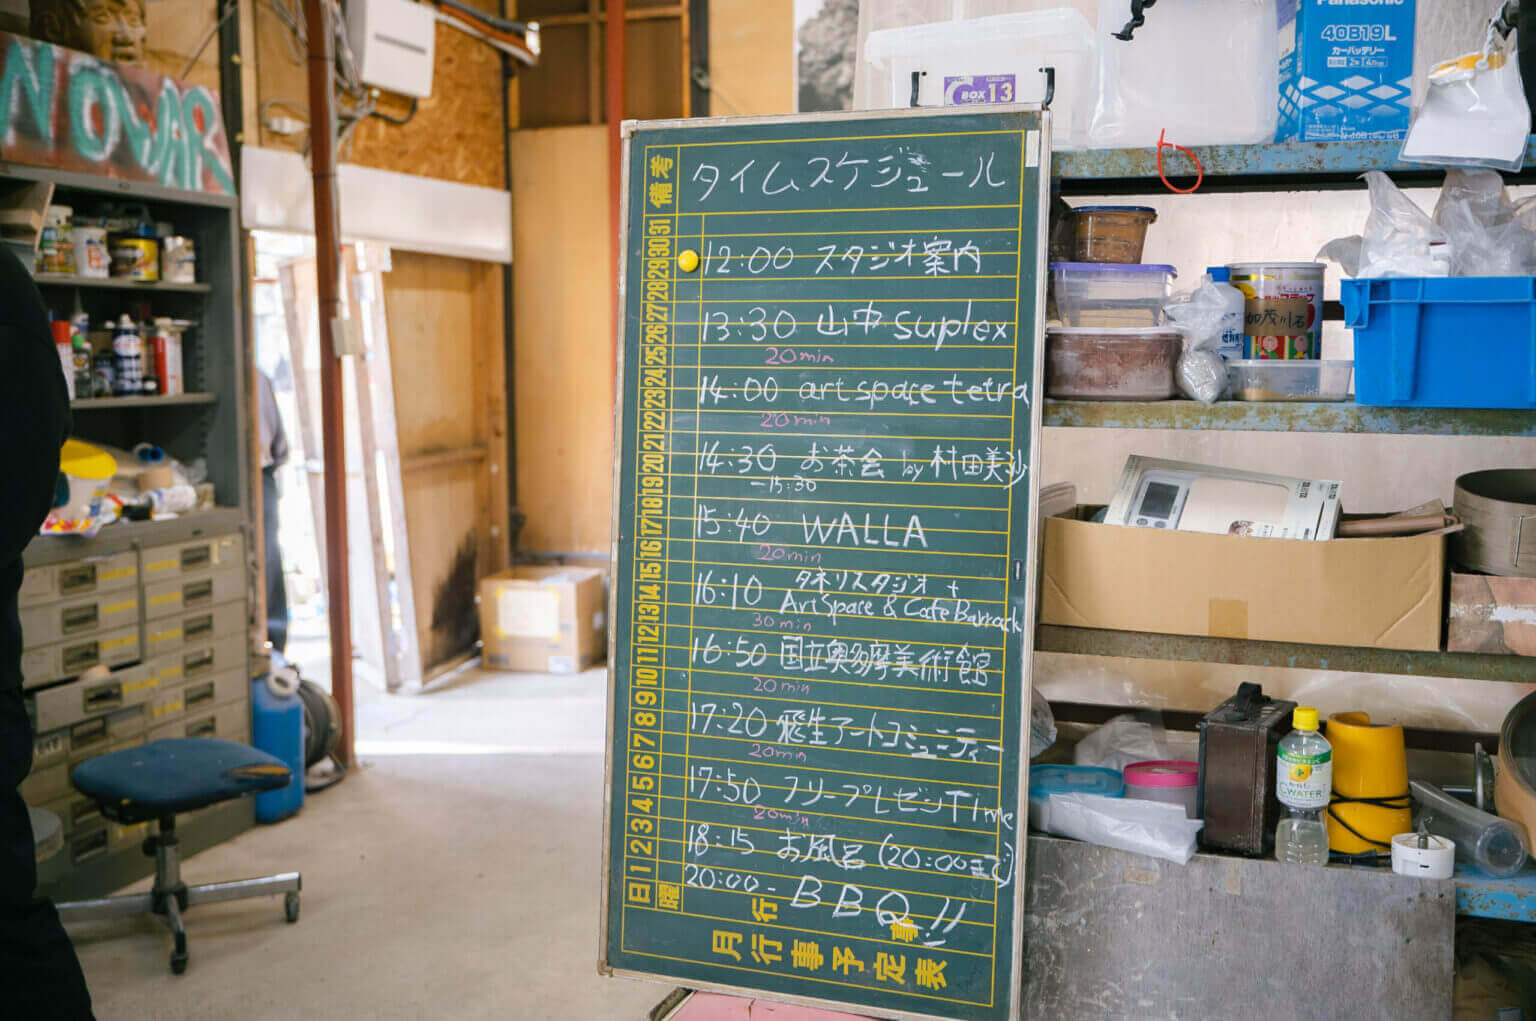 NO WAR
タイムスケジュール
12:00 スタジオ案内
13:30 山中suplex
20min
14:00 art space tetra
20min
14:30 お茶会 by 村田美沙
-15:30
15:40 WALLA
20min
16:10 タネリスタジオ +
Art Space & Cafe Barrack
30min
16:50 国立奥多摩美術館
20min
17:20 飛生アートコミュニティー
20min
17:50 フリープレゼンTime
20min
18:15 お風呂 (20:00まで)
20:00- BBQ!!
備考
31
30
29
28
27
26
25
24
23
22
21
20
19
18
17
16
15
14
13
12
11
10
9
8
7
6
5
4
3
2
1
日
曜
行事
月行事予定表
BOX 13
Panasonic
40B19L
カーバッテリー
加茂川石
C WATER